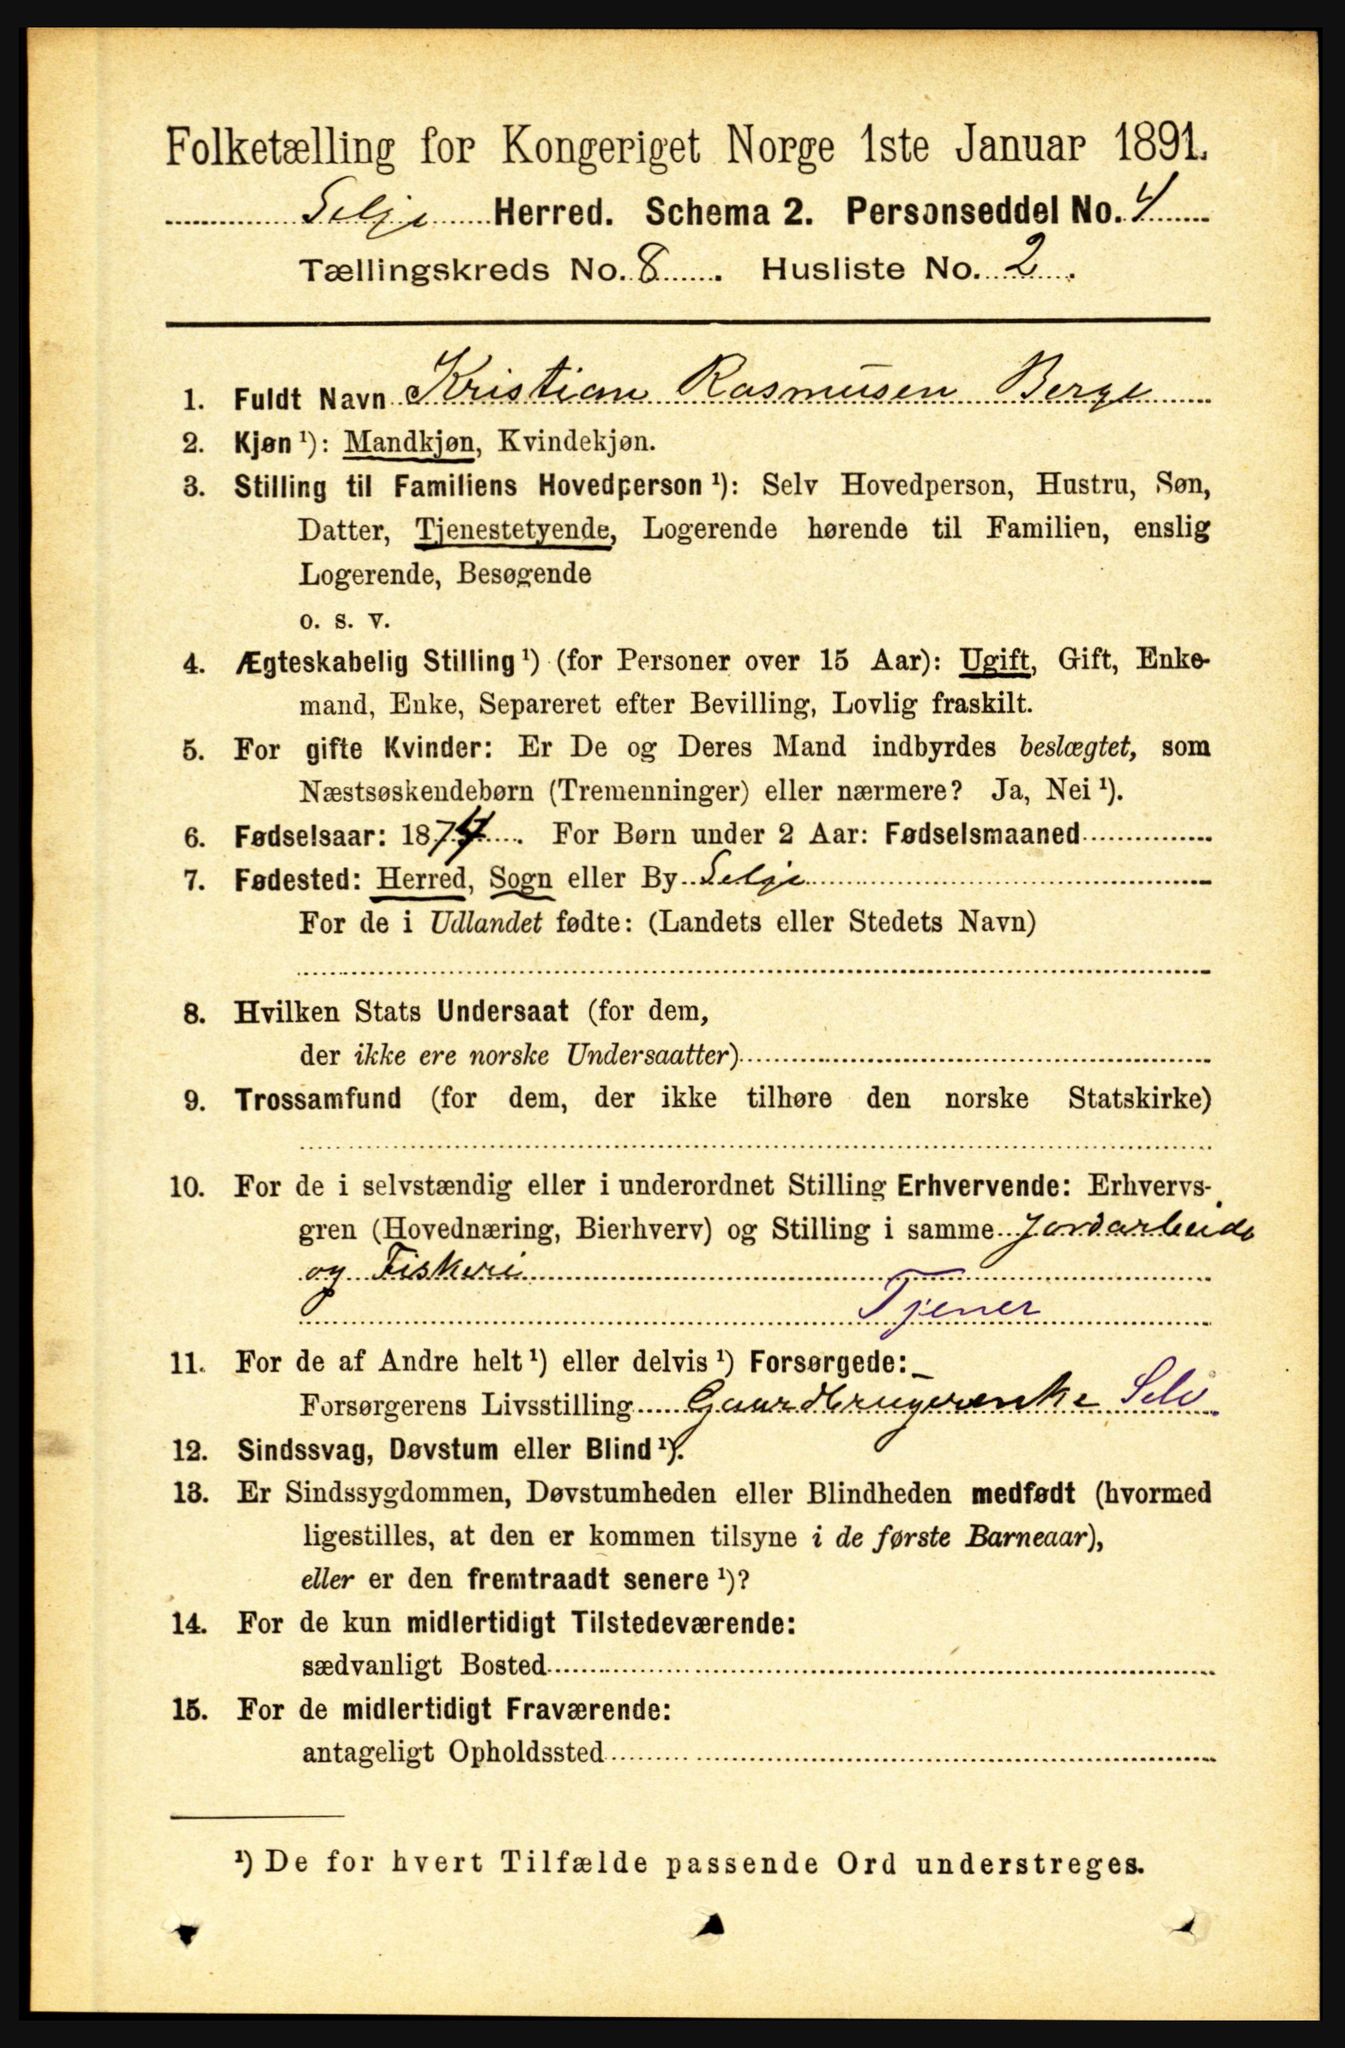 Folketælling for Kongeriget Norge 1ste Januar 1891.
Selje Herred. Schema 2. Personseddel No. 4
Tællingskreds No. 8. Husliste No. 2.
1. Fuldt Navn Kristian Rasmusen Berge
2. Kjøn ¹): Mandkjøn, Kvindekjøn.
3. Stilling til Familiens Hovedperson ¹): Selv Hovedperson, Hustru, Søn,
Datter, Tjenestetyende, Logerende hørende til Familien, enslig
Logerende, Besøgende
o. s. v.
4. Ægteskabelig Stilling ¹) (for Personer over 15 Aar): Ugift, Gift, Enke-
mand, Enke, Separeret efter Bevilling, Lovlig fraskilt.
5. For gifte Kvinder: Er De og Deres Mand indbyrdes beslægtet, som
Næstsøskendebørn (Tremenninger) eller nærmere? Ja, Nei ¹).
6. Fødselsaar: 1874. For Børn under 2 Aar: Fødselsmaaned
7. Fødested: Herred, Sogn eller By Selje
For de i Udlandet fødte: (Landets eller Stedets Navn)
8. Hvilken Stats Undersaat (for dem,
der ikke ere norske Undersaatter)
9. Trossamfund (for dem, der ikke tilhøre den norske Statskirke)
10. For de i selvstændig eller i underordnet Stilling Erhvervende: Erhvervs-
gren (Hovednæring, Bierhverv) og Stilling i samme Jordarbeide
og Fiskeri
Tjener
11. For de af Andre helt ¹) eller delvis ¹) Forsørgede:
Forsørgerens Livsstilling Gaardbrugerenke Selv
12. Sindssvag, Døvstum eller Blind ¹).
13. Er Sindssygdommen, Døvstumheden eller Blindheden medfødt (hvormed
ligestilles, at den er kommen tilsyne i de første Barneaar),
eller er den fremtraadt senere ¹)?
14. For de kun midlertidigt Tilstedeværende:
sædvanligt Bosted
15. For de midlertidigt Fraværende:
antageligt Opholdssted
¹) De for hvert Tilfælde passende Ord understreges.